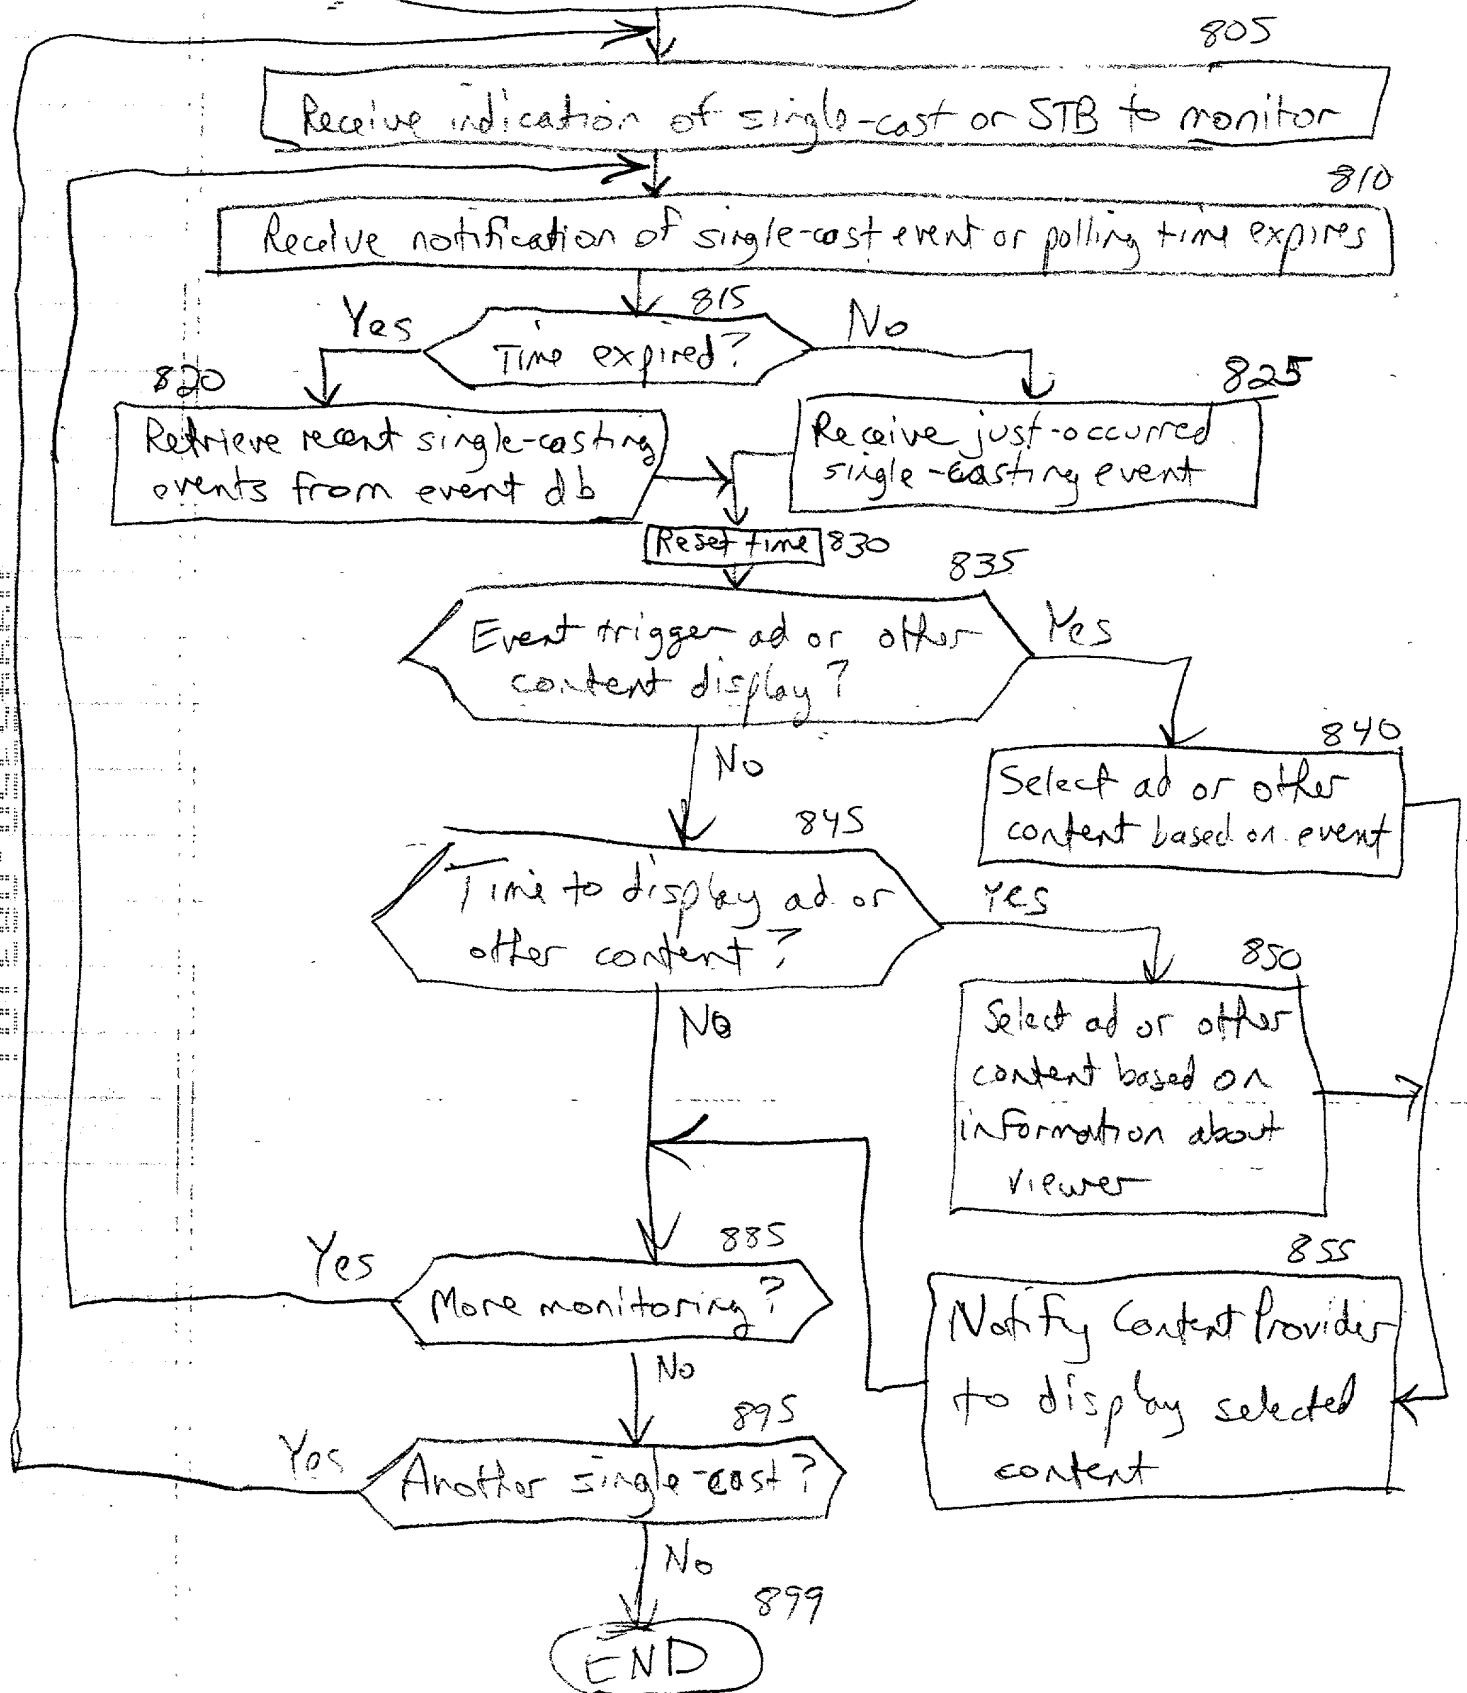 805
Receive indication of single-cast or STB to monitor
810
Receive notification of single-cast event or polling time expires
815
Yes
Time expired?
No
820
825
Retrieve recent single-casting
events from event db
Receive just-occurred
single-casting event
Reset time
830
835
Event trigger ad or other
content display?
Yes
No
840
Select ad or other
content based on event
845
Time to display ad or
other content?
Yes
No
850
Select ad or other
content based on
information about
viewer
885
Yes
More monitoring?
No
855
Notify Content Provider
to display selected
content
895
Yes
Another single-cast?
No
899
END